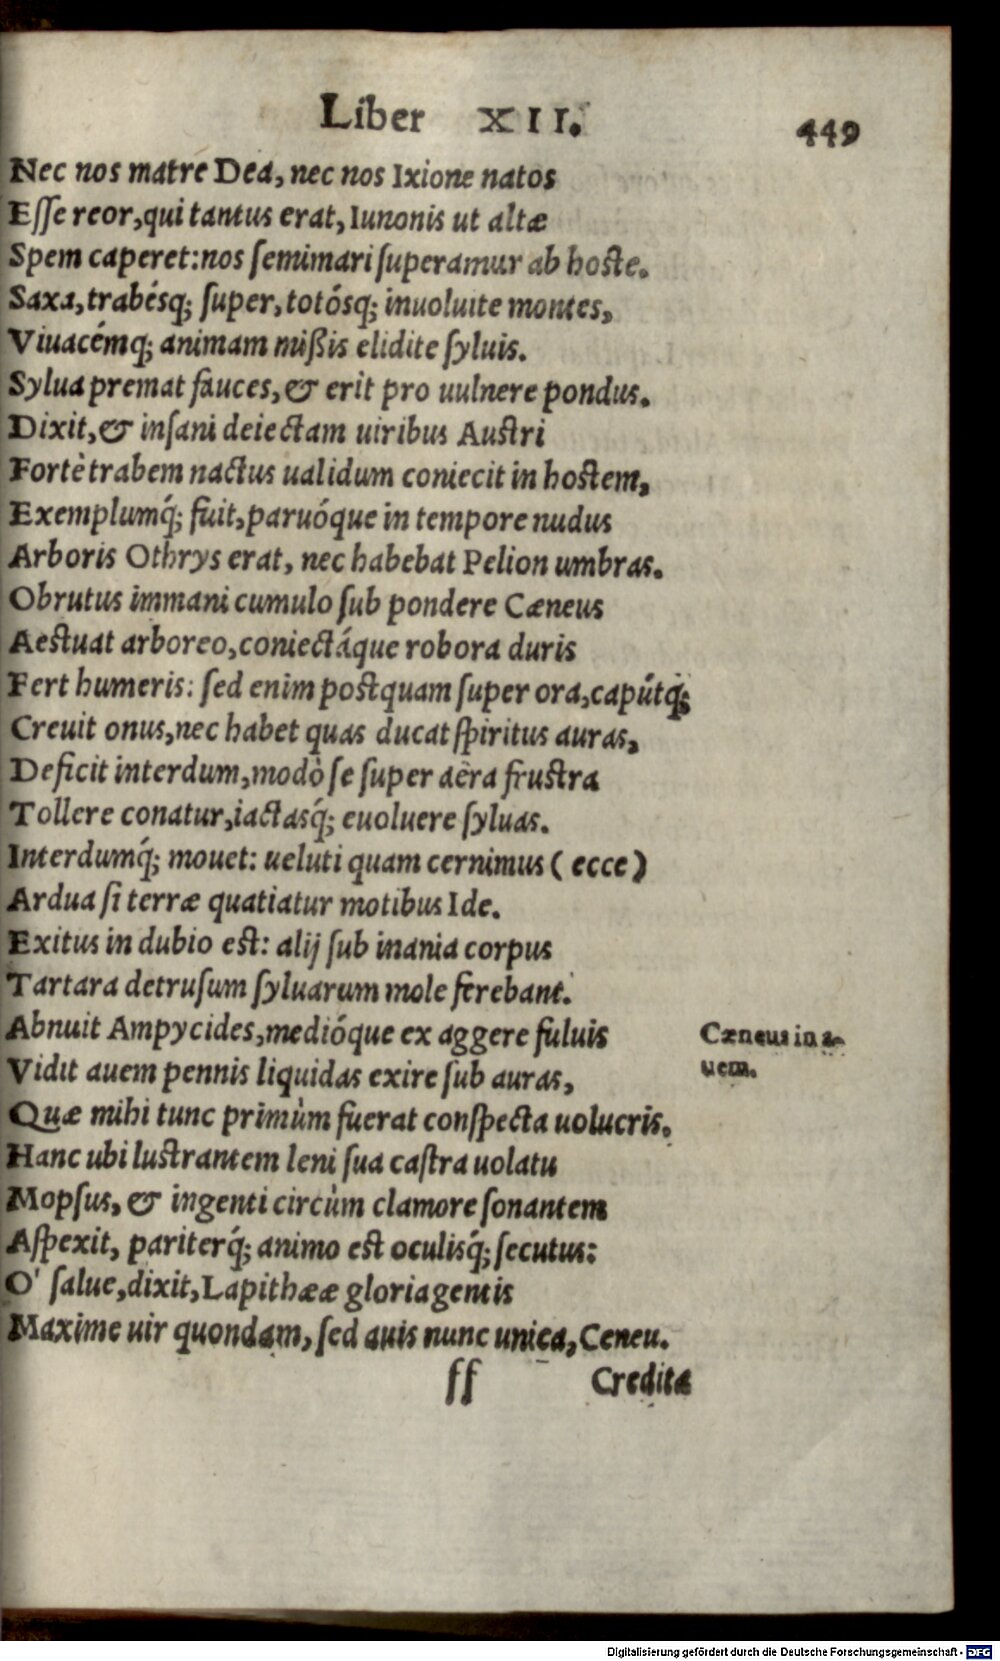 Liber XII. 449
Nec nos matre Dea, nec nos Ixione natos
Eſſe reor, qui tantus erat, Iunonis ut altæ
Spem caperet: nos ſemimari ſuperamur ab hoſte.
Saxa, trabésq; ſuper, totósq; inuoluite montes,
Viuacémq; animam mißis elidite ſyluis.
Sylua premat fauces, & erit pro uulnere pondus.
Dixit, & inſani deiectam uiribus Auſtri
Fortè trabem nactus ualidum coniecit in hoſtem,
Exemplumq́; fuit, paruóque in tempore nudus
Arboris Othrys erat, nec habebat Pelion umbras.
Obrutus immani cumulo ſub pondere Cæneus
Aeſtuat arboreo, coniectáque robora duris
Fert humeris: ſed enim poſtquam ſuper ora, capútq́;
Creuit onus, nec habet quas ducat ſpiritus auras,
Deficit interdum, modò ſe ſuper aëra fruſtra
Tollere conatur, iactasq́; euoluere ſyluas.
Interdumq́; mouet: ueluti quam cernimus (ecce)
Ardua ſi terræ quatiatur motibus Ide.
Exitus in dubio eſt: alij ſub inania corpus
Tartara detruſum ſyluarum mole ferebant.
Abnuit Ampycides, medióque ex aggere fuluis
Vidit auem pennis liquidas exire ſub auras,
Quæ mihi tunc primùm fuerat conſpecta uolucris.
Hanc ubi luſtrantem leni ſua caſtra uolatu
Mopſus, & ingenti circùm clamore ſonantem
Aſpexit, pariterq́; animo eſt oculisq́; ſecutus:
O' ſalue, dixit, Lapithææ gloria gentis
Maxime uir quondam, ſed auis nunc unica, Ceneu.
Cæneus in a-
uem.
ſſ Credita
Digitalisierung gefördert durch die Deutsche Forschungsgemeinschaft - DFG